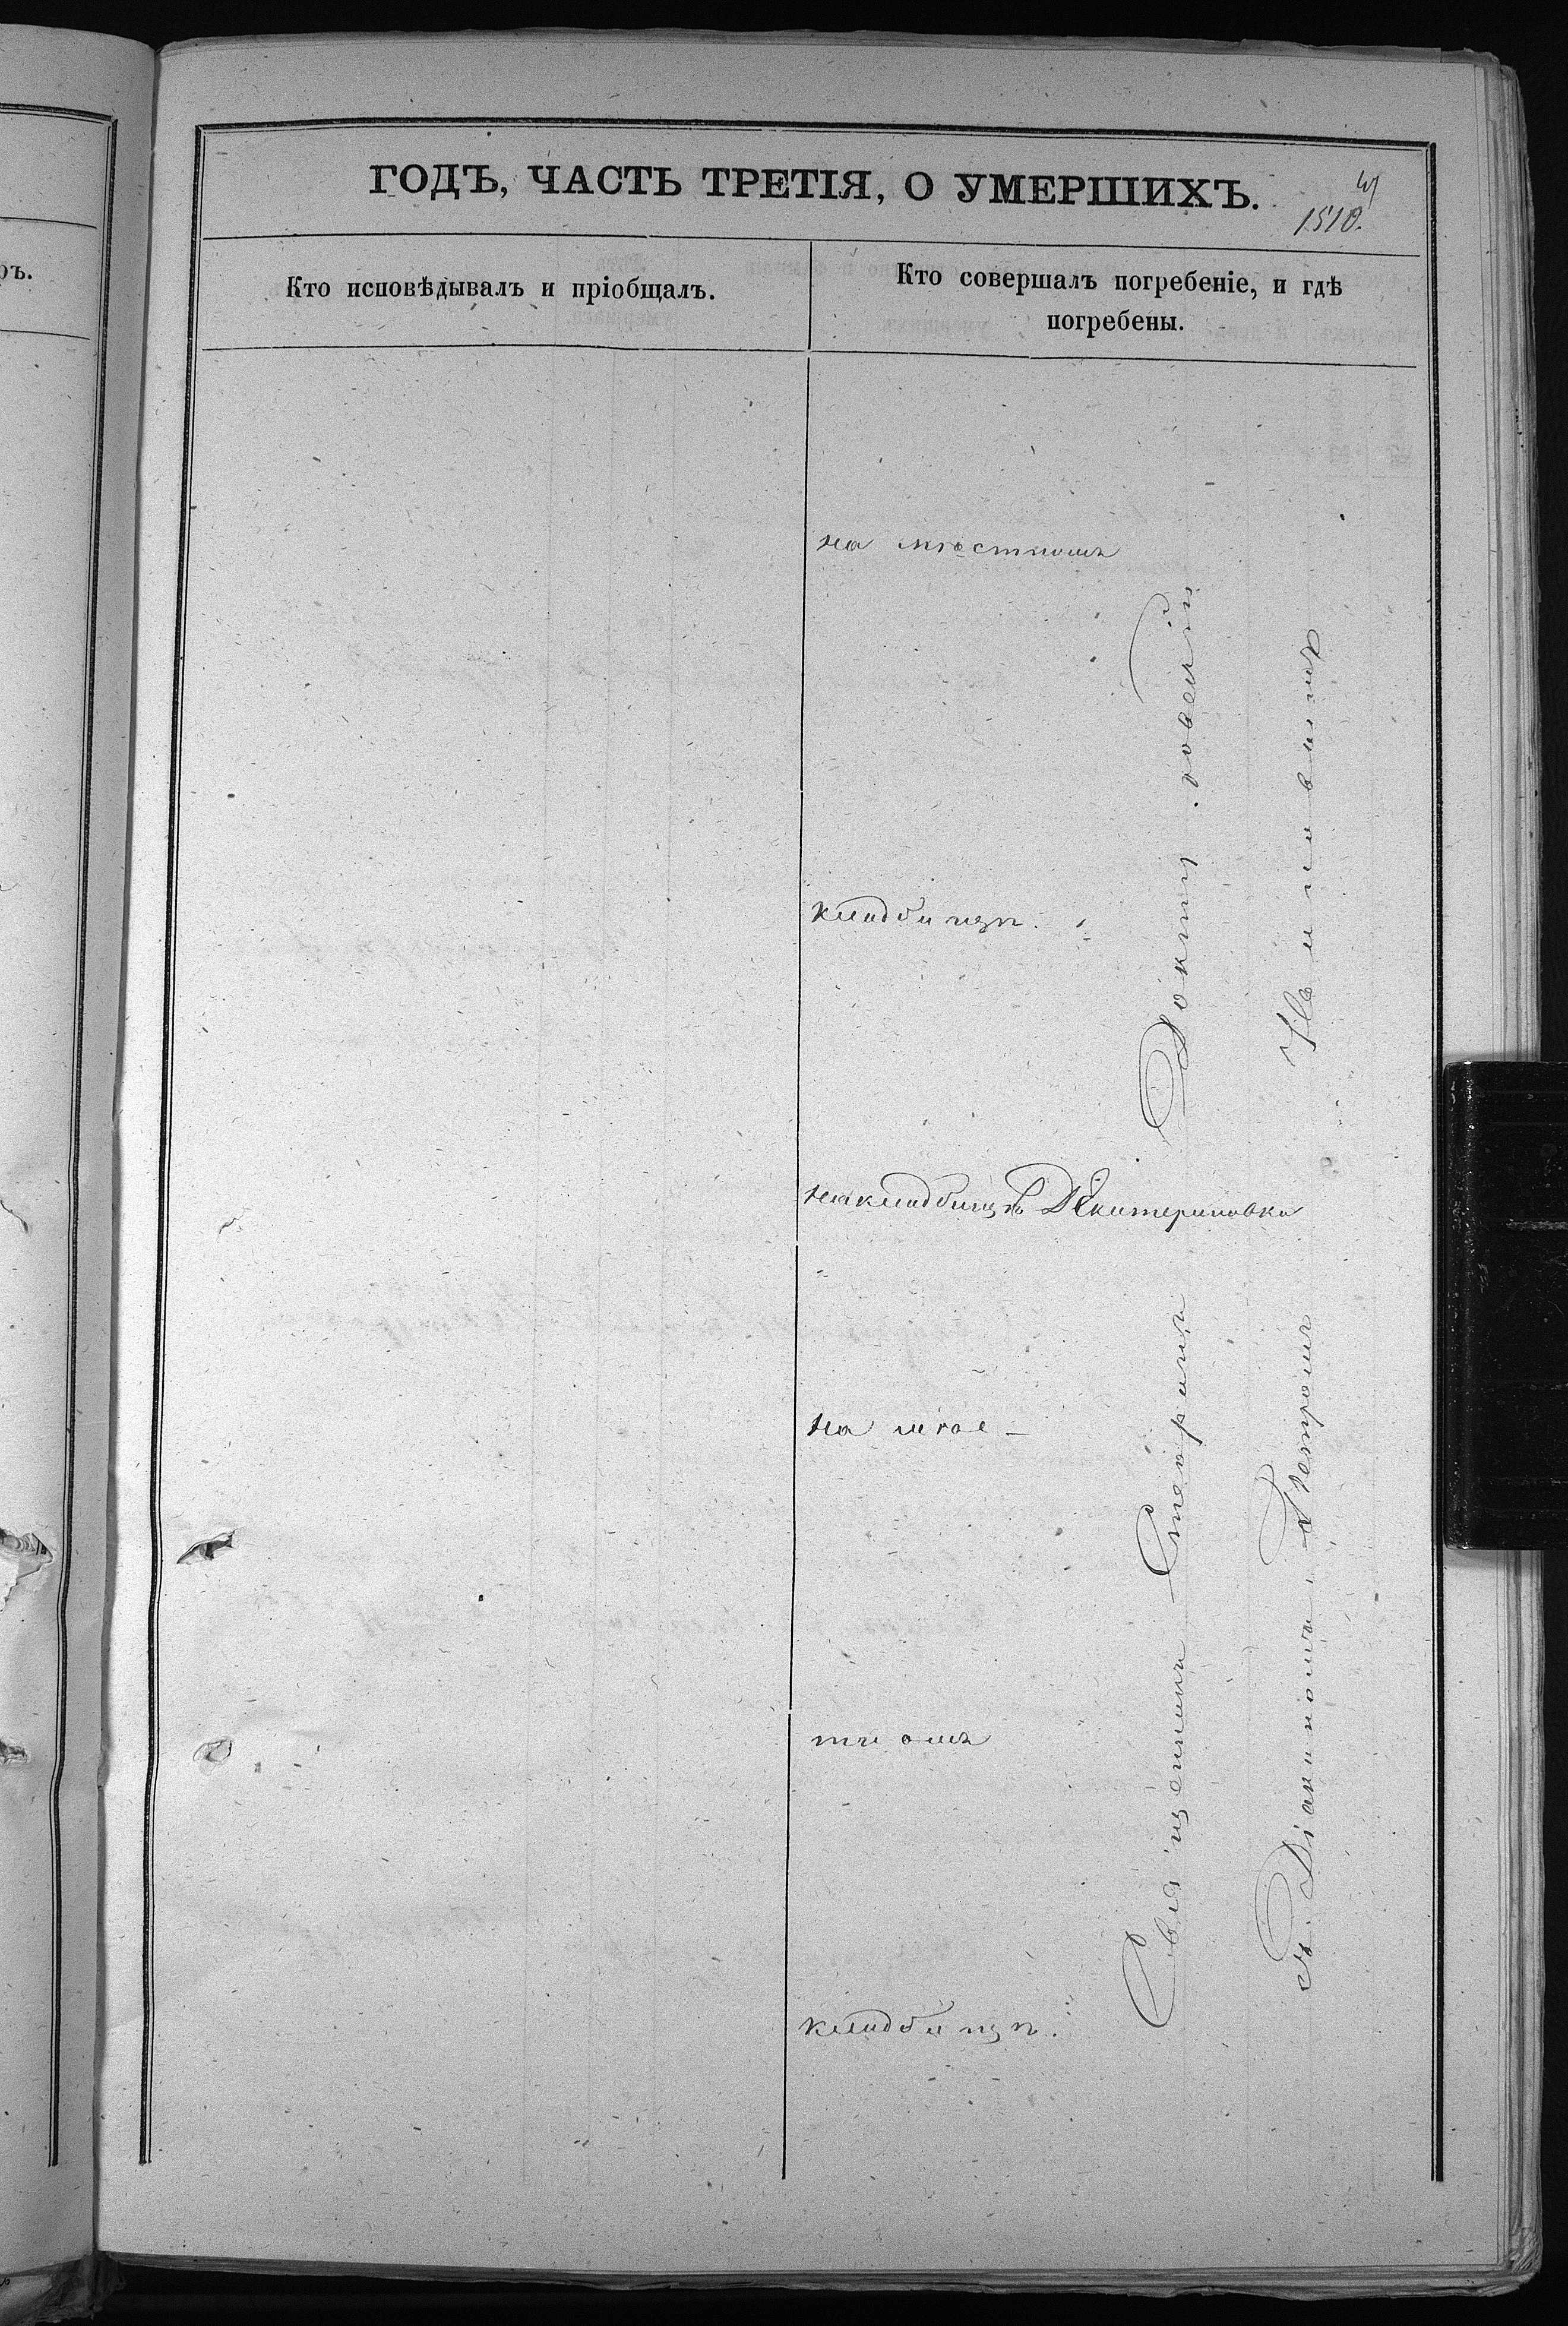 ръ.
ГОДЪ, ЧАСТЬ ТРЕТІЯ, О УМЕРШИХЪ.
1510.
Кто исповѣдывалъ и пріобщалъ.
Кто совершалъ погребеніе, и гдѣ
погребены.
на мѣстномъ
кладбищѣ.
на кладбищѣ Д Екатериновка
на мѣс-
тномъ
кладбищѣ.
Священникъ
Діакономъ Петромъ